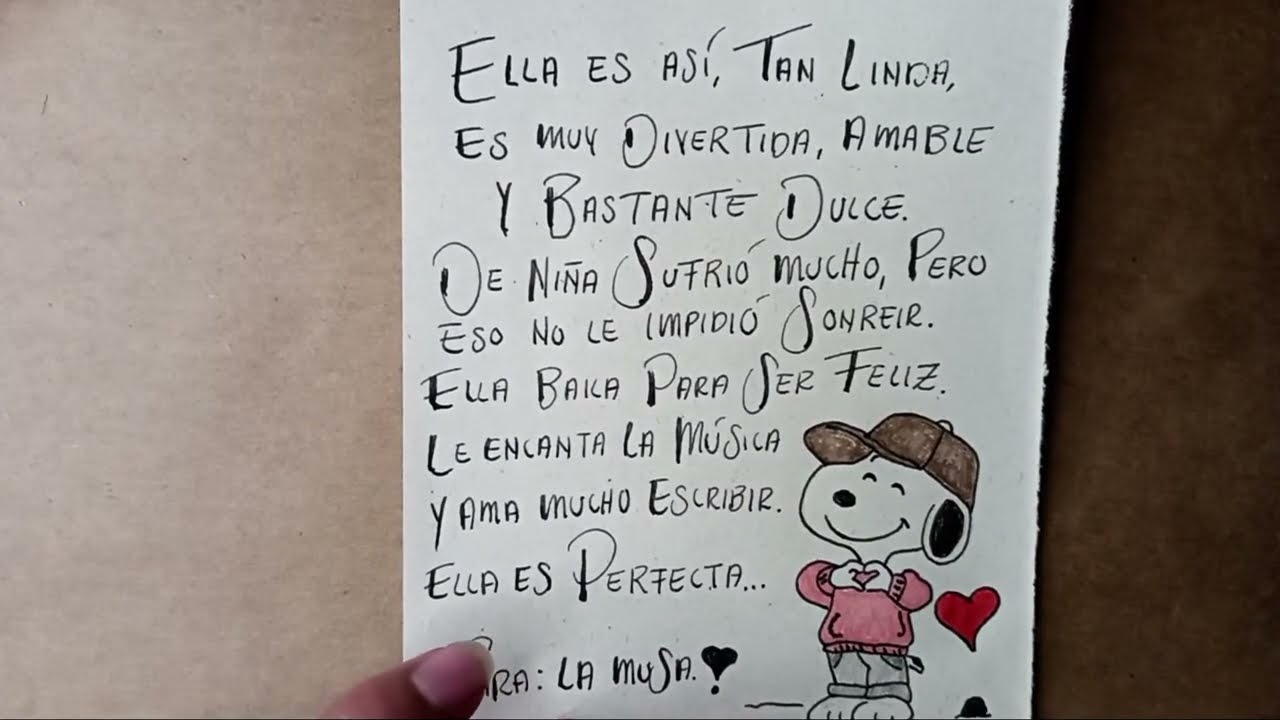 Ella es así, Tan Linda,
es muy Divertida, Amable
y Bastante Dulce.
De niña Sufrió mucho, Pero
eso no le impidió Sonreir.
Ella Baila Para Ser Feliz.
Le encanta la Música
y ama mucho Escribir.
Ella es Perfecta...
Para: La musa.